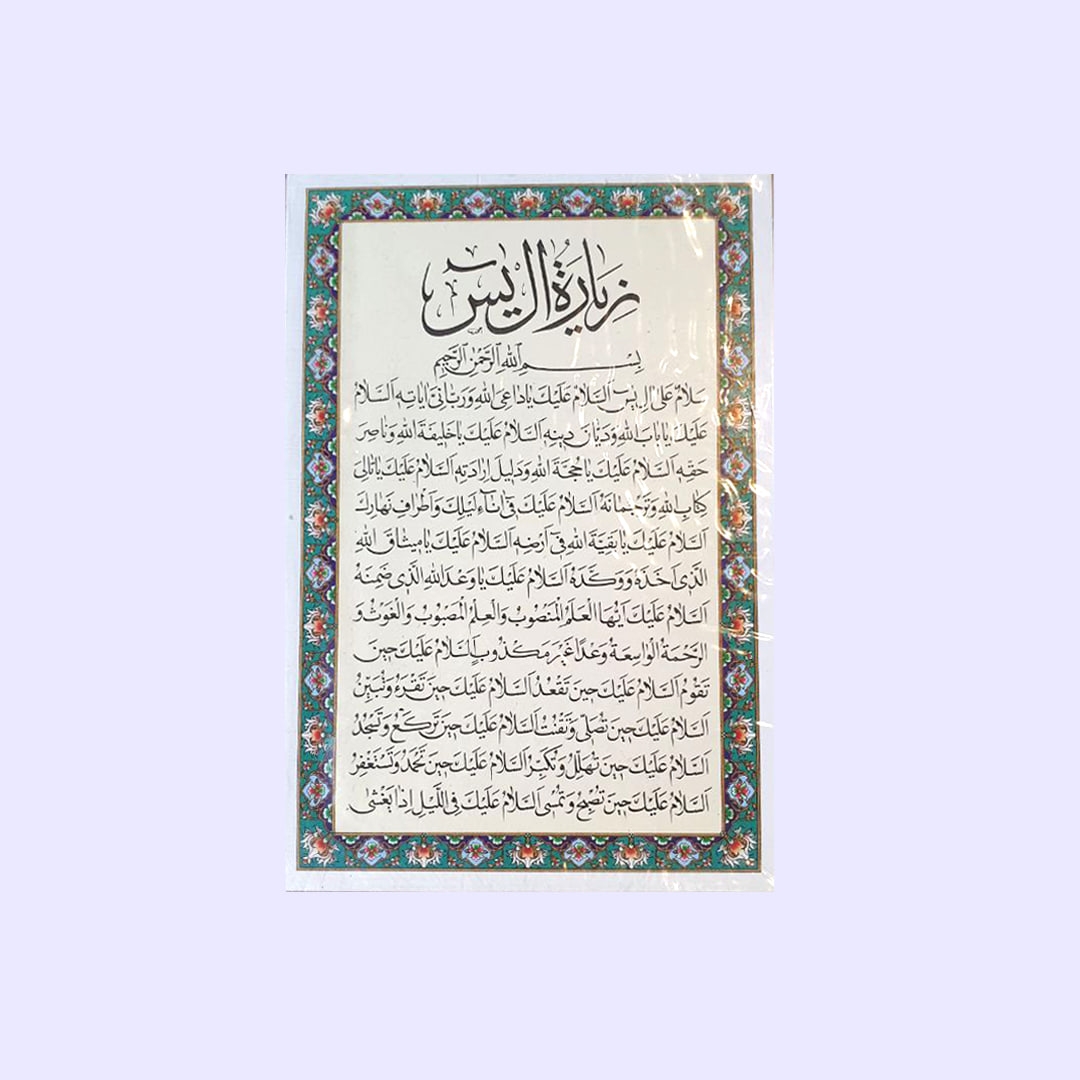 زِيَارَة اٰل يٰسٓ
بِسْمِ اللهِ الرَّحْمٰنِ الرَّحِيمِ
سَلَامٌ عَلىٰ اٰلِ يٰسٓ اَلسَّلَامُ عَلَيْكَ يَا دَاعِيَ اللهِ وَرَبَّانِيَّ اٰيَاتِهِ اَلسَّلَامُ
عَلَيْكَ يَا بَابَ اللهِ وَدَيَّانَ دِينِهِ اَلسَّلَامُ عَلَيْكَ يَا خَلِيفَةَ اللهِ وَنَاصِرَ
حَقِّهِ اَلسَّلَامُ عَلَيْكَ يَا حُجَّةَ اللهِ وَدَلِيلَ اِرَادَتِهِ اَلسَّلَامُ عَلَيْكَ يَا تَالِيَ
كِتَابِ اللهِ وَتَرْجُمَانَهُ اَلسَّلَامُ عَلَيْكَ فِي اٰنَاءِ لَيْلِكَ وَاَطْرَافِ نَهَارِكَ
اَلسَّلَامُ عَلَيْكَ يَا بَقِيَّةَ اللهِ فِي اَرْضِهِ اَلسَّلَامُ عَلَيْكَ يَا مِيثَاقَ اللهِ
الَّذِي اَخَذَهُ وَوَكَّدَهُ اَلسَّلَامُ عَلَيْكَ يَا وَعْدَ اللهِ الَّذِي ضَمِنَهُ
اَلسَّلَامُ عَلَيْكَ اَيُّهَا الْعَلَمُ الْمَنْصُوبُ وَالْعِلْمُ الْمَصْبُوبُ وَالْغَوْثُ وَ
الرَّحْمَةُ الْوَاسِعَةُ وَعْدًا غَيْرَ مَكْذُوبٍ اَلسَّلَامُ عَلَيْكَ حِينَ
تَقُومُ اَلسَّلَامُ عَلَيْكَ حِينَ تَقْعُدُ اَلسَّلَامُ عَلَيْكَ حِينَ تَقْرَءُ وَتُبَيِّنُ
اَلسَّلَامُ عَلَيْكَ حِينَ تُصَلِّي وَتَقْنُتُ اَلسَّلَامُ عَلَيْكَ حِينَ تَرْكَعُ وَتَسْجُدُ
اَلسَّلَامُ عَلَيْكَ حِينَ تُهَلِّلُ وَتُكَبِّرُ اَلسَّلَامُ عَلَيْكَ حِينَ تَحْمَدُ وَتَسْتَغْفِرُ
اَلسَّلَامُ عَلَيْكَ حِينَ تُصْبِحُ وَتُمْسِي اَلسَّلَامُ عَلَيْكَ فِي اللَّيْلِ اِذَا يَغْشىٰ